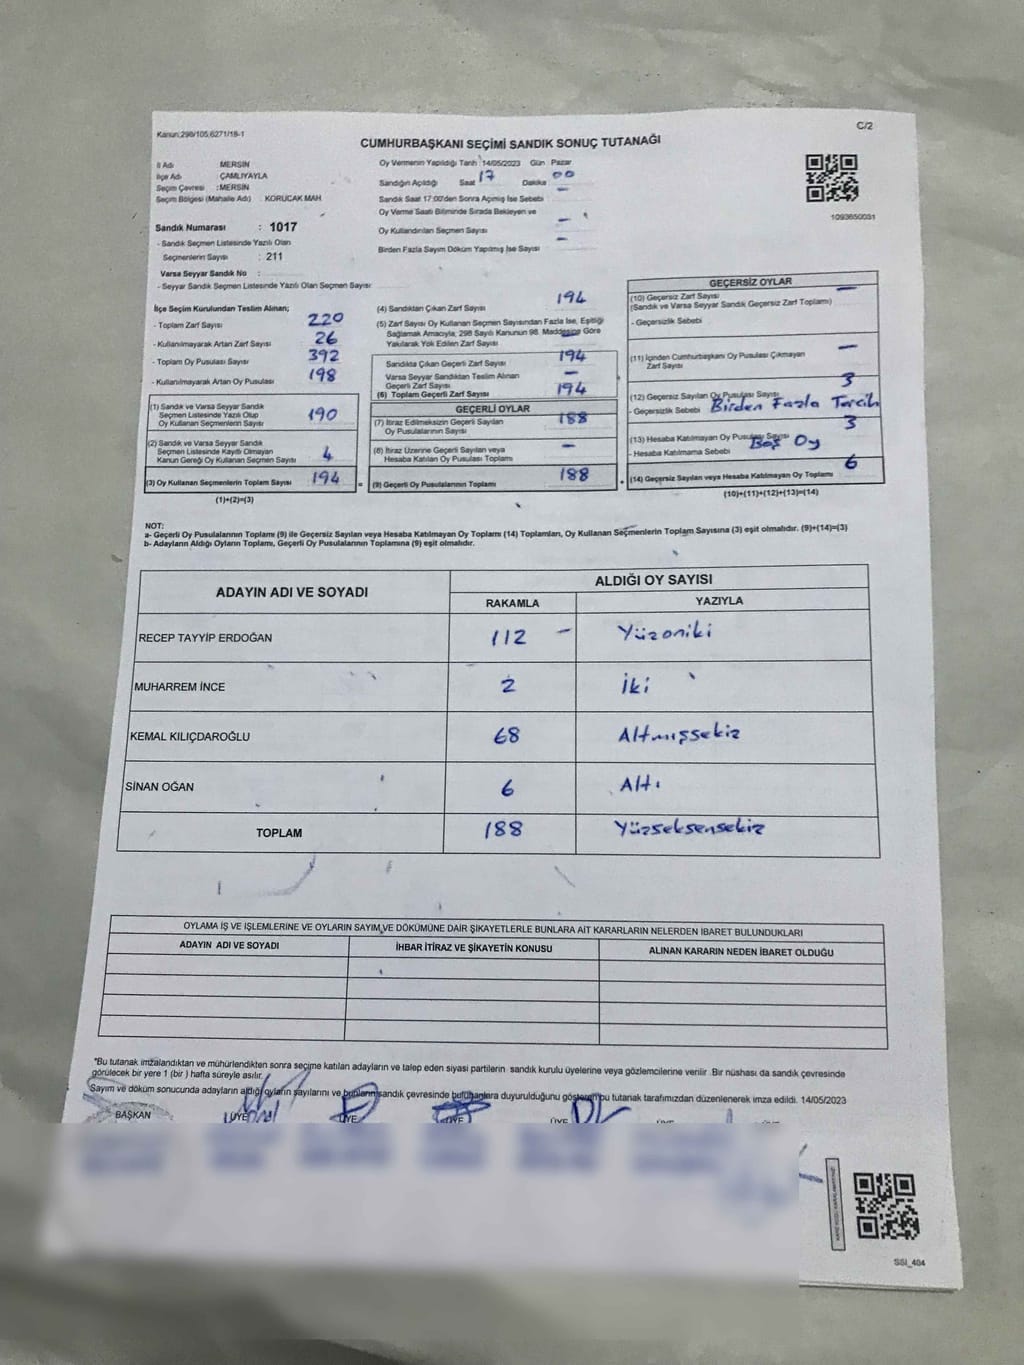 Kanun:298/105;6271/18-1
C/2
CUMHURBAŞKANI SEÇİMİ SANDIK SONUÇ TUTANAĞI
İl Adı MERSİN
İlçe Adı ÇAMLIYAYLA
Seçim Çevresi :MERSİN
Seçim Bölgesi (Mahalle Adı) : KORUCAK MAH
Sandık Numarası : 1017
- Sandık Seçmen Listesinde Yazılı Olan
Seçmenlerin Sayısı : 211
Varsa Seyyar Sandık No :
- Seyyar Sandık Seçmen Listesinde Yazılı Olan Seçmen Sayısı:
Oy Vermenin Yapıldığı Tarih :14/05/2023 Gün Pazar
Sandığın Açıldığı Saat 17 Dakika 00
Sandık Saat 17:00'den Sonra Açımış İse Sebebi -
Oy Verme Saati Bitiminde Sırada Bekleyen ve
Oy Kullandırılan Seçmen Sayısı -
Birden Fazla Sayım Döküm Yapılmış İse Sayısı -
1093650031
İlçe Seçim Kurulundan Teslim Alınan;
- Toplam Zarf Sayısı 220
- Kullanılmayarak Artan Zarf Sayısı 26
- Toplam Oy Pusulası Sayısı 392
- Kullanılmayarak Artan Oy Pusulası 198
(1) Sandık ve Varsa Seyyar Sandık
Seçmen Listesinde Yazılı Olup
Oy Kullanan Seçmenlerin Sayısı 190
(2) Sandık ve Varsa Seyyar Sandık
Seçmen Listesinde Kayıtlı Olmayan
Kanun Gereği Oy Kullanan Seçmen Sayısı 4
(3) Oy Kullanan Seçmenlerin Toplam Sayısı 194 =
(1)+(2)=(3)
(4) Sandıktan Çıkan Zarf Sayısı 194
(5) Zarf Sayısı Oy Kullanan Seçmen Sayısından Fazla İse, Eşitliği
Sağlamak Amacıyla; 298 Sayılı Kanunun 98. Maddesine Göre
Yakılarak Yok Edilen Zarf Sayısı -
Sandıkta Çıkan Geçerli Zarf Sayısı 194
Varsa Seyyar Sandıktan Teslim Alınan
Geçerli Zarf Sayısı -
(6) Toplam Geçerli Zarf Sayısı 194
GEÇERLİ OYLAR
(7) İtiraz Edilmeksizin Geçerli Sayılan
Oy Pusulalarının Sayısı 188
(8) İtiraz Üzerine Geçerli Sayılan veya
Hesaba Katılan Oy Pusulası Toplamı -
(9) Geçerli Oy Pusulalarının Toplamı 188 +
GEÇERSİZ OYLAR
(10) Geçersiz Zarf Sayısı -
(Sandık ve Varsa Seyyar Sandık Geçersiz Zarf Toplamı)
- Geçersizlik Sebebi
(11) İçinden Cumhurbaşkanı Oy Pusulası Çıkmayan
Zarf Sayısı -
(12) Geçersiz Sayılan Oy Pusulası Sayısı 3
- Geçersizlik Sebebi Birden Fazla Tercih
(13) Hesaba Katılmayan Oy Pusulası Sayısı 3
- Hesaba Katılmama Sebebi Boş Oy
(14) Geçersiz Sayılan veya Hesaba Katılmayan Oy Toplamı 6
(10)+(11)+(12)+(13)=(14)
NOT:
a- Geçerli Oy Pusulalarının Toplamı (9) ile Geçersiz Sayılan veya Hesaba Katılmayan Oy Toplamı (14) Toplamları, Oy Kullanan Seçmenlerin Toplam Sayısına (3) eşit olmalıdır. (9)+(14)=(3)
b- Adayların Aldığı Oyların Toplamı, Geçerli Oy Pusulalarının Toplamına (9) eşit olmalıdır.
ADAYIN ADI VE SOYADI ALDIĞI OY SAYISI
RAKAMLA YAZIYLA
RECEP TAYYİP ERDOĞAN 112 - Yüzoniki
MUHARREM İNCE 2 İki
KEMAL KILIÇDAROĞLU 68 Altmışsekiz
SİNAN OĞAN 6 Altı
TOPLAM 188 Yüzseksensekiz
OYLAMA İŞ VE İŞLEMLERİNE VE OYLARIN SAYIM VE DÖKÜMÜNE DAİR ŞİKAYETLERLE BUNLARA AİT KARARLARIN NELERDEN İBARET BULUNDUKLARI
ADAYIN ADI VE SOYADI İHBAR İTİRAZ VE ŞİKAYETİN KONUSU ALINAN KARARIN NEDEN İBARET OLDUĞU
*Bu tutanak imzalandıktan ve mühürlendikten sonra seçime katılan adayların ve talep eden siyasi partilerin sandık kurulu üyelerine veya gözlemcilerine verilir .Bir nüshası da sandık çevresinde
görülecek bir yere 1 (bir ) hafta süreyle asılır.
Sayım ve döküm sonucunda adayların aldığı oyların sayılarını ve bunların sandık çevresinde bulunanlara duyurulduğunu gösteren bu tutanak tarafımızdan düzenlenerek imza edildi. 14/05/2023
BAŞKAN ÜYE ÜYE ÜYE ÜYE ÜYE ÜYE
SSI_404